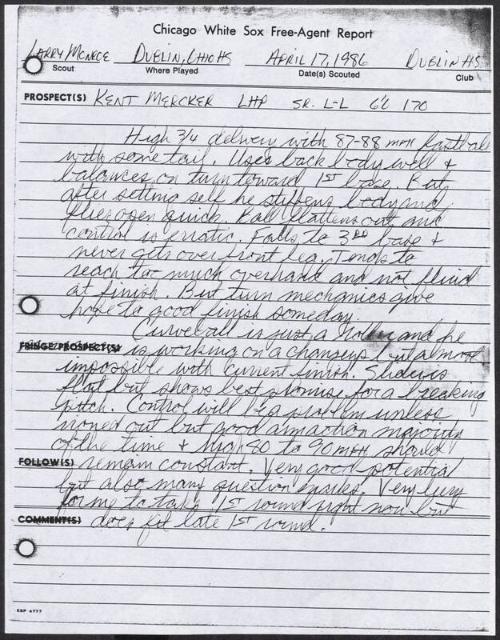 Chicago White Sox Free-Agent Report
LARRY MONROE DUBLIN, OHIO HS APRIL 17, 1986 DUBLIN HS
Scout Where Played Date(s) Scouted Club
PROSPECT(S) KENT MERCKER LHP SR. L-L 6'2 170
High 3/4 delivery with 87-88 MPH fastball
with some tail. Uses back body well &
balances on turn toward 1ST base. But,
after setting self he stiffens body and
flies open quick. Ball flattens out and
control is erratic. Falls to 3RD base &
never gets over front leg. Tends to
reach too much overhand and not fluid
at finish. But turn mechanics give
hope to good finish someday.
Curveball is just a roller and he
FRINGE PROSPECT(S) is working on a changeup but almost
impossible with current finish. Slider is
flat but shows best promise for a breaking
pitch. Control will be a problem unless
ironed out but good arm action majority
of the time & high 80 to 90 MPH should
FOLLOW(S) remain constant. Very good potential
but also many question marks. Very
for me to take 1ST round right now but
COMMENT(S) does fit late 1ST round.